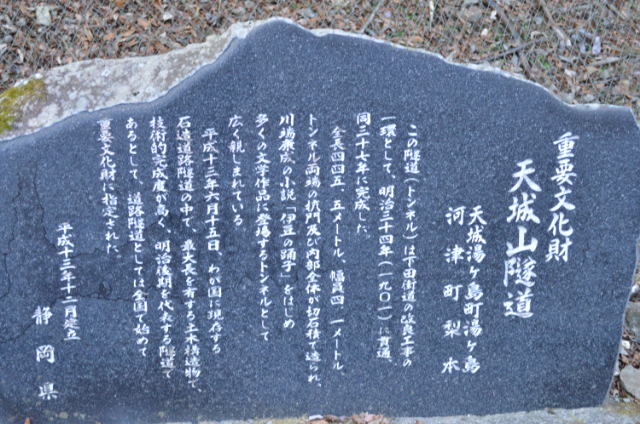 重要文化財
天城山隧道
天城湯ヶ島町湯ヶ島
河津町梨本
この隧道(トンネル)は下田街道の改良工事の
一環として、明治三十四年(一九〇一)に貫通、
同三十七年に完成した。
全長四四五．五メートル、幅員四．一メートル、
トンネル両端の抗門及び内部全体が切石積で造られ、
川端康成の小説「伊豆の踊子」をはじめ
多くの文学作品に登場するトンネルとして
広く親しまれている
平成十三年六月十五日、わが国に現存する
石造道路隧道の中で、最大長を有する土木構造物で、
技術的完成度が高く、明治後期を代表する隧道で
あるとして、道路隧道としては全国で始めて
重要文化財に指定された。
平成十三年十二月建立
静岡県